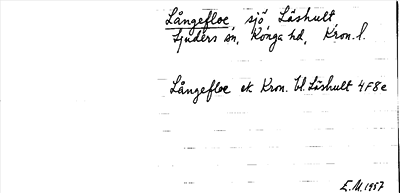 Långefloe, sjö Låshult
Ljuders sn, Konga hd, Kron. l.
Långefloe ek Kron. bl. Låshult 4F8e
E.M. 1957